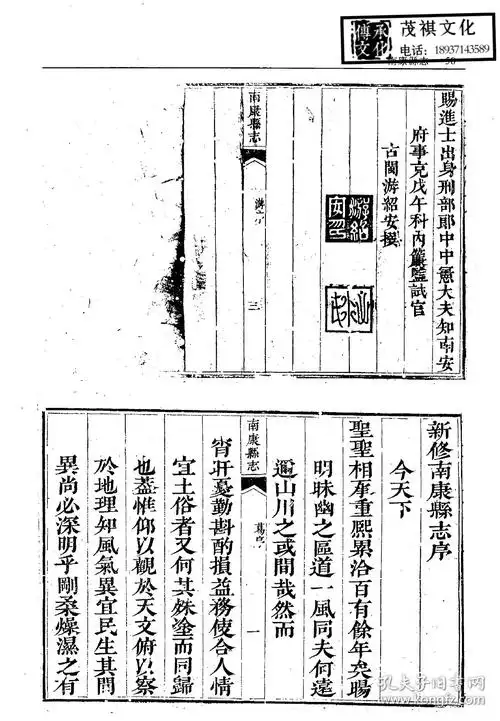 承化
傳文
茂祺文化
电话：18937143589
南康縣志 50
賜進士出身刑部郎中中憲大夫知南安
府事充戊午科內簾監試官
古閩游紹安撰
游紹
安印
南康縣志
三
新修南康縣志序
今天下
聖聖相承重熙累洽百有餘年矣暘
明昧幽之區道一風同夫何遠
邇山川之或間哉然而
南康縣志
一
宵旰憂勤斟酌損益務使合人情
宜土俗者又何其殊塗而同歸
也蓋惟仰以觀於天文俯以察
於地理知風氣異宜民生其間
異尚必深明乎剛柔燥濕之有
孔夫子旧书网